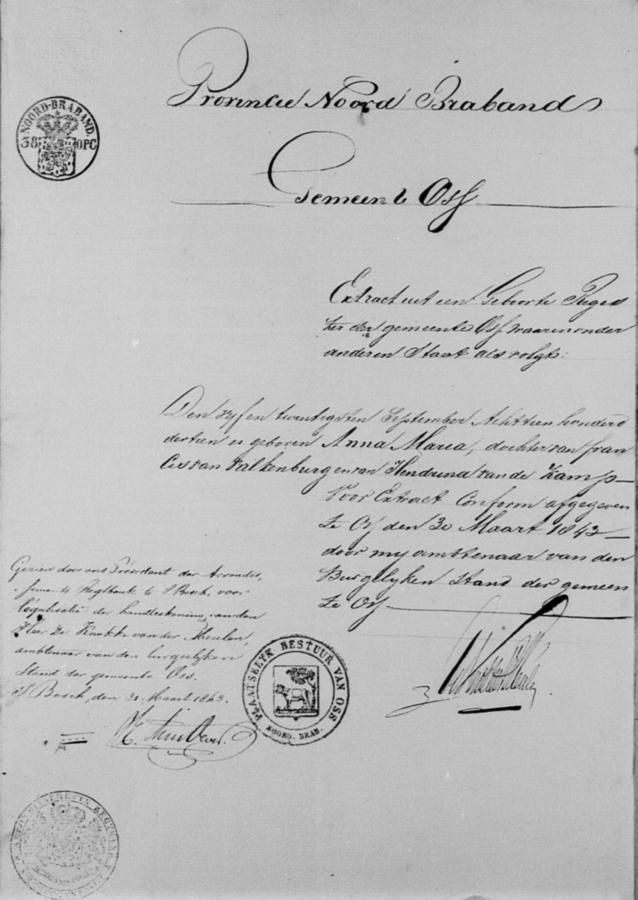 NOORD-BRABAND.
38 OPC
Provincie Noord Braband
Gemeente Oss
Extract uit een Geboorte Regis
ter der gemeente Oss waarin onder
anderen Staat als volgt:
Den vyf en twentigsten September Achttien honderd
dertien is geboren Anna Maria, dochter van fran
cis van Valkenburg en van Hendrina van de Kamp
Voor Extract Conform afgegeven
te Oss den 30 Maart 1843
door my ambtenaar van den
Burgelyken Stand der gemeen
te Oss
Gezien door ons President der Arrondis-
sements Regtbank te 's Bosch, voor
legalisatie der handteekening van den
Heer De Kuokke van der Meulen,
ambtenaar van den burgerlijken
Stand der gemeente Oss.
's Bosch, den 31 Maart 1843.
PLAATSELYK BESTUUR VAN OSS
NOORD. BRAB.